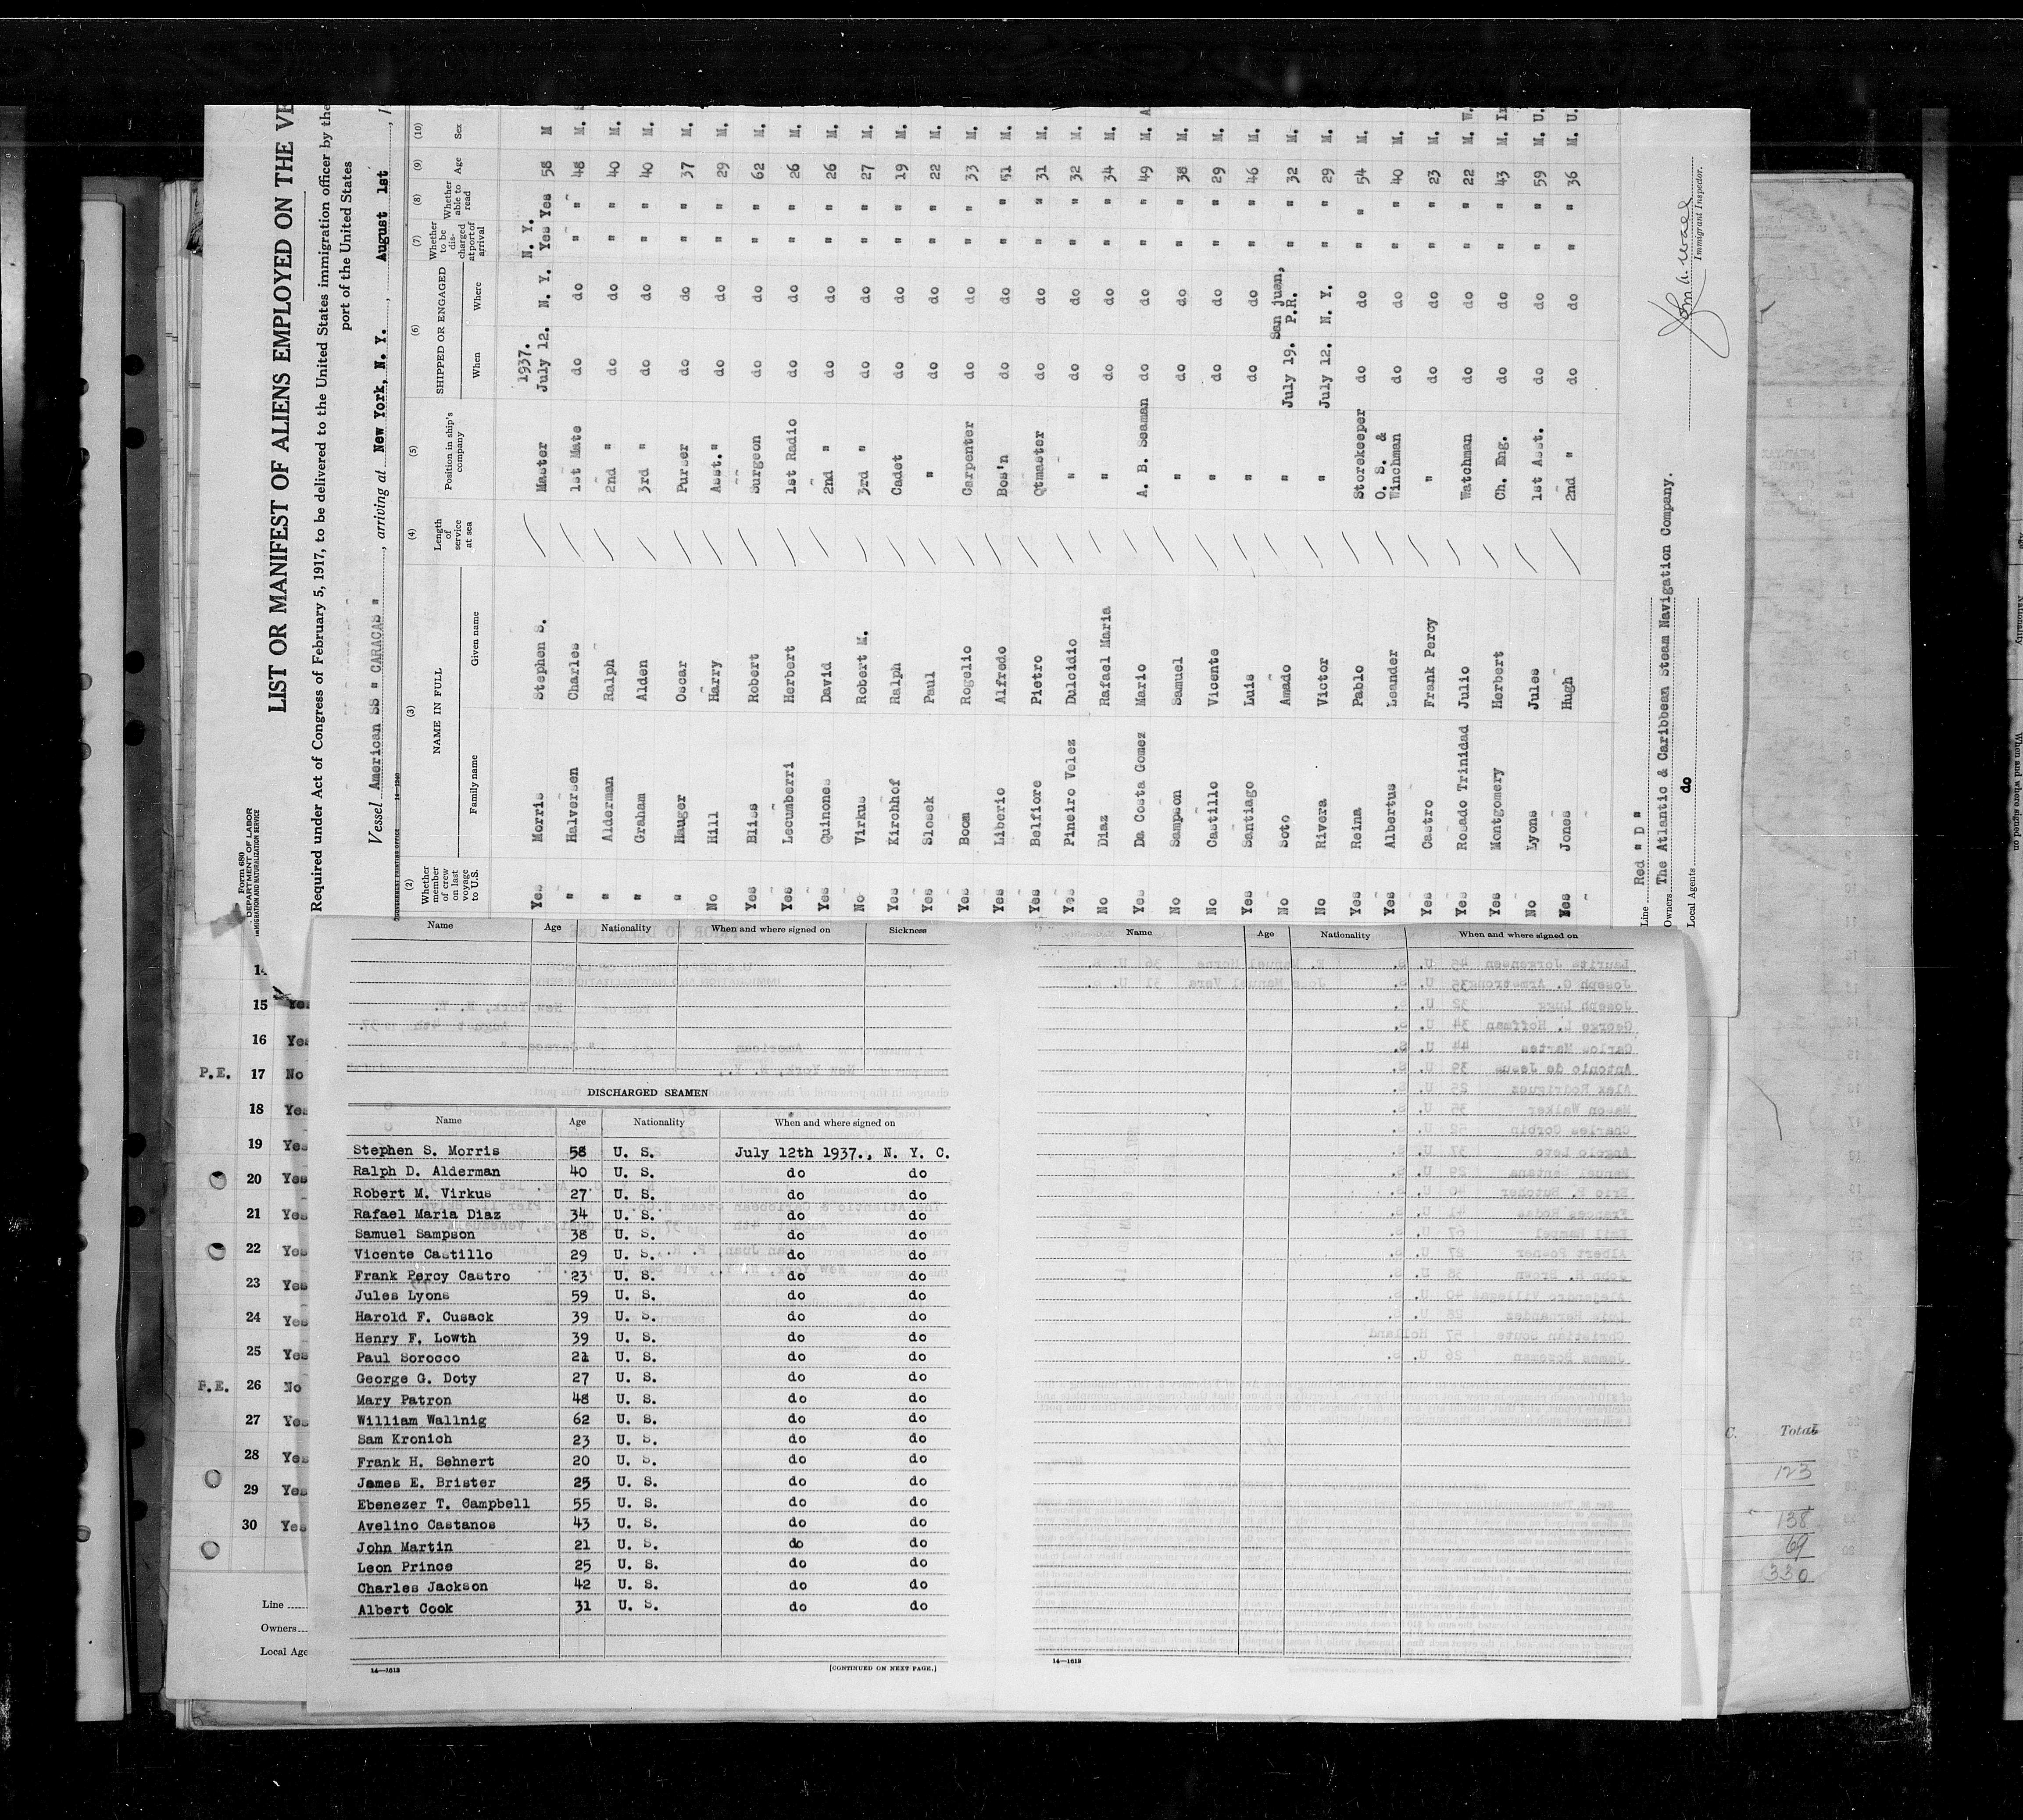 Form 680
DEPARTMENT OF LABOR
IMMIGRATION AND NATURALIZATION SERVICE
LIST OR MANIFEST OF ALIENS EMPLOYED ON THE VE
Required under Act of Congress of February 5, 1917, to be delivered to the United States immigration officer by the
port of the United States
Vessel American SS " CARACAS " , arriving at New York, N. Y. , August 1st , 1
(2) (3) (4) (5) (6) (7) (8) (9) (10)
Whether member of crew on last voyage to U.S. NAME IN FULL Family name Given name Length of service at sea Position in ship's company SHIPPED OR ENGAGED When Where Whether to be discharged at port of arrival Whether able to read Age Sex
1937. N. Y.
Yes Morris Stephen S. Master July 12. N. Y. Yes Yes 58 M
" Halversen Charles 1st Mate do do " " 48 M.
" Alderman Ralph 2nd " do do " " 40 M.
" Graham Alden 3rd " do do " " 40 M.
" Hauger Oscar Purser do do " " 37 M.
No Hill Harry Asst." do do " " 29 M.
Yes Bliss Robert Surgeon do do " " 62 M.
Yes Lecumberri Herbert 1st Radio do do " " 26 M.
Yes Quinones David 2nd " do do " " 26 M.
No Virkus Robert M. 3rd " do do " " 27 M.
Yes Kirchhof Ralph Cadet do do " " 19 M.
Yes Slosek Paul " do do " " 22 M.
Yes Boom Rogelio Carpenter do do " " 33 M.
Yes Liberio Alfredo Bos'n do do " " 51 M.
Yes Belfiore Pietro Qtmaster do do " " 31 M.
Yes Pineiro Velez Dulcidio " do do " " 32 M.
No Diaz Rafael Maria " do do " " 34 M.
Yes Da Costa Gomez Mario A. B. Seaman do do " " 49 M. A
No Sampson Samuel " do do " " 38 M.
No Castillo Vicente " do do " " 29 M.
Yes Santiago Luis " do do " " 46 M.
No Soto Amado " July 19. San juan, P.R. " " 32 M.
No Rivera Victor " July 12. N. Y. " " 29 M.
Yes Reina Pablo Storekeeper do do " " 54 M.
Yes Albertus Leander O. S. & Winchman do do " " 40 M.
Yes Castro Frank Percy " do do " " 23 M.
Yes Rosado Trinidad Julio Watchman do do " " 22 M. W.
Yes Montgomery Herbert Ch. Eng. do do " " 43 M. I
No Lyons Jules 1st Asst. do do " " 59 M. U.
Yes Jones Hugh 2nd " do do " " 36 M. U.
Line Red " D "
Owners The Atlantic & Caribbean Steam Navigation Company.
Local Agents do
Immigrant Inspector.
14
15 Yes
16 Yes
P.E. 17 No
18 Yes
19 Yes
20 Yes
21 Yes
22 Yes
23 Yes
24 Yes
25 Yes
P.E. 26 No
27 Yes
28 Yes
29 Yes
30 Yes
Line
Owners
Local Age
Name Age Nationality When and where signed on Sickness
DISCHARGED SEAMEN
Name Age Nationality When and where signed on
Stephen S. Morris 58 U. S. July 12th 1937., N. Y. C.
Ralph D. Alderman 40 U. S. do do
Robert M. Virkus 27 U. S. do do
Rafael Maria Diaz 34 U. S. do do
Samuel Sampson 38 U. S. do do
Vicente Castillo 29 U. S. do do
Frank Percy Castro 23 U. S. do do
Jules Lyons 59 U. S. do do
Harold F. Cusack 39 U. S. do do
Henry F. Lowth 39 U. S. do do
Paul Sorocco 21 U. S. do do
George G. Doty 27 U. S. do do
Mary Patron 48 U. S. do do
William Wallnig 62 U. S. do do
Sam Kronich 23 U. S. do do
Frank H. Sehnert 20 U. S. do do
James E. Brister 25 U. S. do do
Ebenezer T. Campbell 55 U. S. do do
Avelino Castanos 43 U. S. do do
John Martin 21 U. S. do do
Leon Prince 25 U. S. do do
Charles Jackson 42 U. S. do do
Albert Cook 31 U. S. do do
14—1613 [CONTINUED ON NEXT PAGE.]
Name Age Nationality When and where signed on
14—1613
C. Total
123
138
69
330